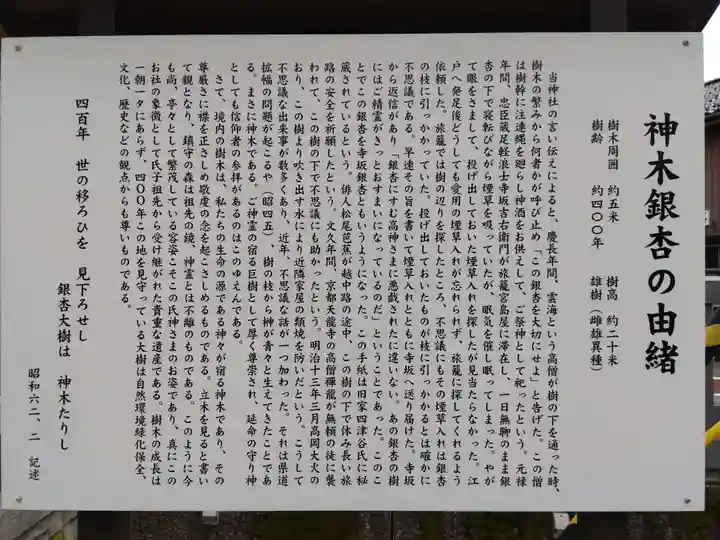 神木銀杏の由緒
樹木周囲 約五米 樹高 約二十米
樹齢 約四〇〇年 雄樹(雌雄異種)
当神社の言い伝えによると、慶長年間、雲海という高僧が樹の下を通った時、
樹木の繁みから何者かが呼び止め「この銀杏を大切にせよ」と告げた。この僧
は樹幹に注連縄を廻らし神酒をお供えして、ご祭神として祀ったという。元禄
年間、忠臣蔵足軽浪士寺坂吉右衛門が旅籠宮島屋に滞在し、一日無聊のまま銀
杏の下で寝転びながら煙草を吸っていたが、眠気を催し眠ってしまった。やが
て眼をさまして、投げ出しておいた煙草入れを探したが見当たらなかった。江
戸へ発足後どうしても愛用の煙草入れが忘れられず、旅籠に探してくれるよう
依頼した。旅籠では樹の辺りを探したところ、不思議にもその煙草入れは銀杏
の枝に引っかかっていた。投げ出しておいたものが枝に引っかかるとは確かに
不思議である。早速その旨を書いて煙草入れとともに寺坂へ送り届けた。寺坂
から返信があり「銀杏にすむ高神さまに悪戯されたに違いない。あの銀杏の樹
にはご精霊がきっとおすまいになっているのだ」ということであった。このこ
とでこの銀杏を寺坂銀杏ともいうようになった。この手紙は旧家四津谷氏に秘
蔵されているという。俳人松尾芭蕉が越中路の途中、この樹の下で休み長い旅
路の安全を祈願したという。文久年間、京都天龍寺の高僧禅龍が無頼の徒に襲
われて、この樹の下で不思議にも助かったという。明治十三年三月高岡大火の
おり、この樹より吹き出す水により近隣家屋の類焼を防いだという。こうして
不思議な出来事が数多くあり、近年、不思議な話が一つ加わった。それは県道
拡幅の問題が起こるや(昭四五)、樹の枝から榊が青々と生えてきたことであ
る。まさに神木である。ご神霊の宿る巨樹として厚く尊崇され、延命の守り神
としても信仰者の参拝があるのはこのゆえんである。
さて、境内の樹木は、私たちの生命の源である神々が宿る神木であり、その
尊厳さに襟を正さしめ敬虔の念を起こさしめるものである。立木を見ると書い
て親となり、鎮守の森は祖先の鏡、神霊とは不離のものである。このように今
も尚、亭々として繁茂している容姿こそこの氏神さまのお姿であり、真にこの
お社の象徴として氏子祖先から受け継がれた貴重な遺産である。樹木の成長は
一朝一夕にあらず、四〇〇年この地を見守っている大樹は自然環境緑化保全、
文化、歴史などの観点からも尊いものである。
四百年 世の移ろひを 見下ろせし
銀杏大樹は 神木たりし
昭和六二、二 記述